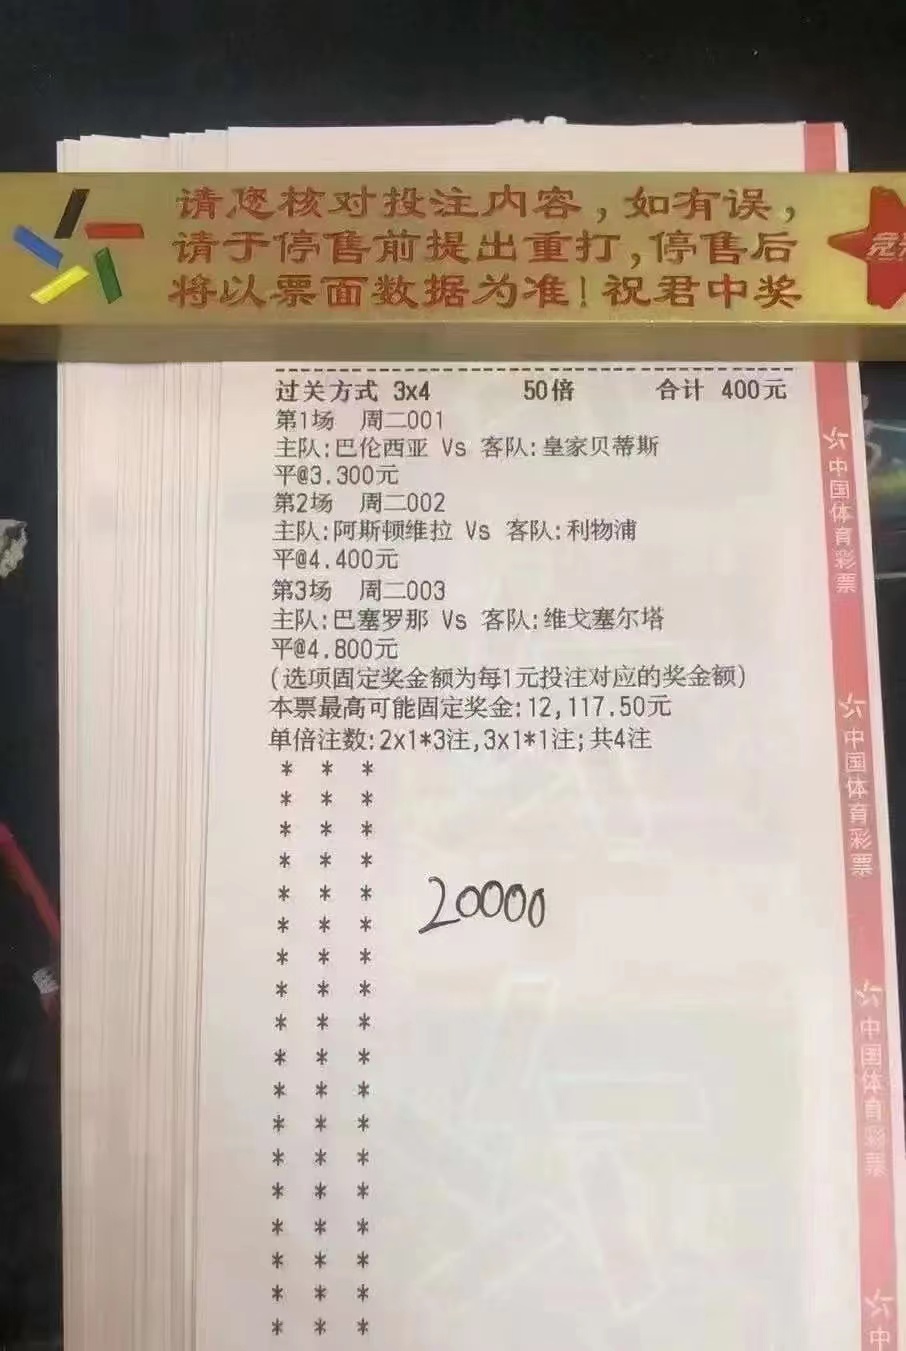 请您核对投注内容，如有误，
请于停售前提出重打，停售后
将以票面数据为准！祝君中奖
过关方式 3x4 50倍 合计 400元
第1场 周二001
主队:巴伦西亚 Vs 客队:皇家贝蒂斯
平@3.300元
第2场 周二002
主队:阿斯顿维拉 Vs 客队:利物浦
平@4.400元
第3场 周二003
主队:巴塞罗那 Vs 客队:维戈塞尔塔
平@4.800元
(选项固定奖金额为每1元投注对应的奖金额)
本票最高可能固定奖金:12,117.50元
单倍注数:2x1*3注,3x1*1注;共4注
* * *
* * *
* * *
* * *
* * *
* * *
* * *
* * *
* * *
* * *
* * *
* * *
* * *
* * *
* * *
* * *
* * *
* * *
20000
中国体育彩票
中国体育彩票
中国体育彩票
中